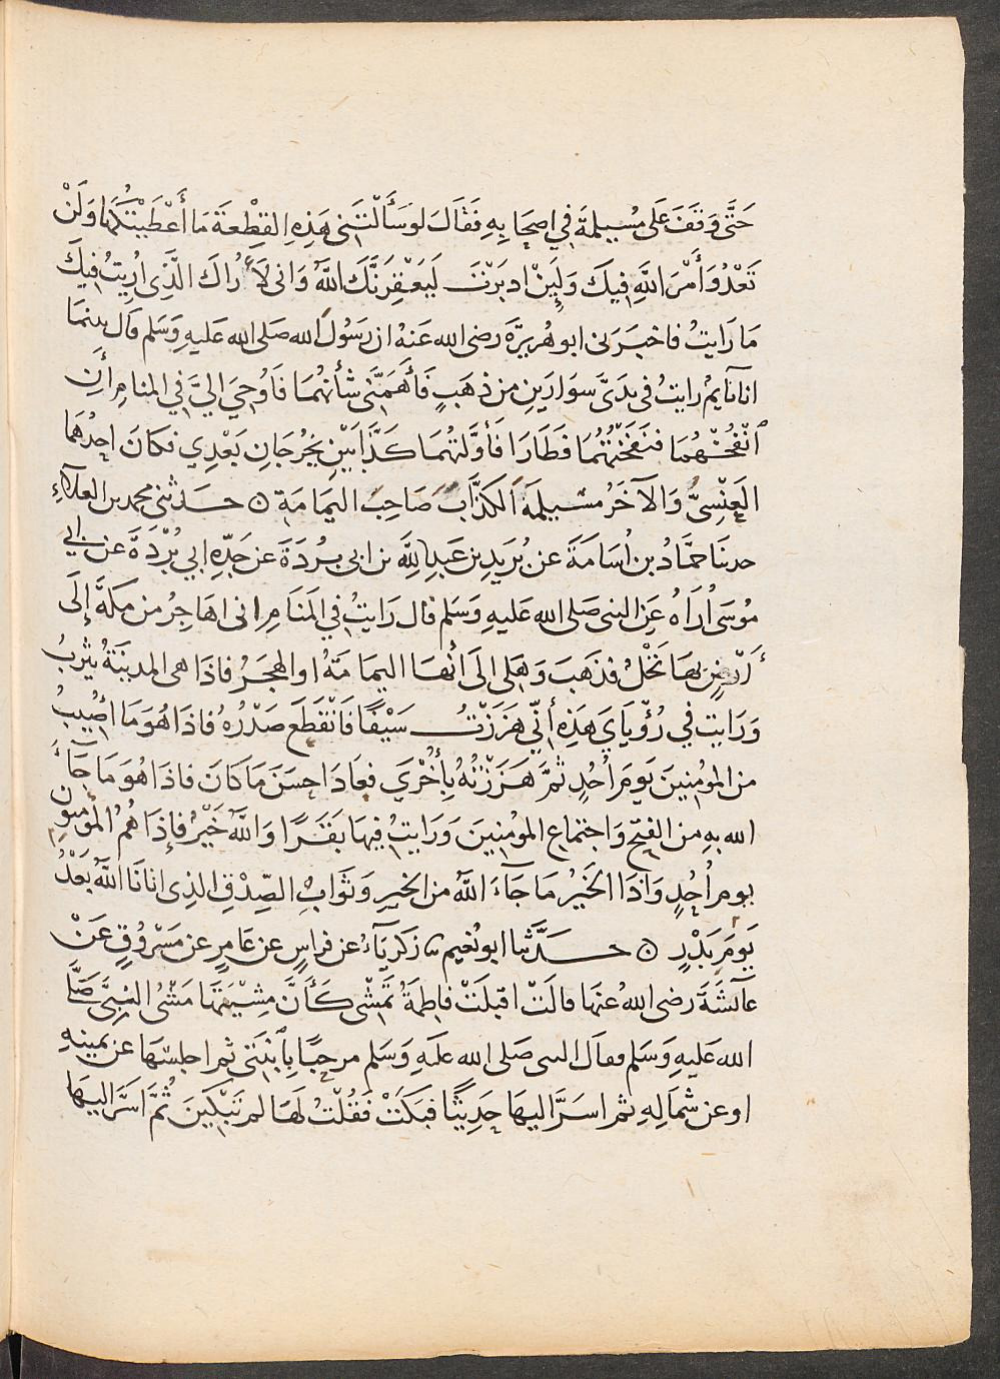 حَتَّى وَقَفَ عَلَى مُسَيلمةَ في اصحَابِهِ فَقَالَ لو سَأَلْتَنِى هَذِهِ القِطْعَةَ مَا أَعْطَيْتُكَهَا وَلَنْ
تَعْدُوَ أَمْرَ اللَّهِ فِيكَ وَلَئِنْ ادبَرْتَ لَيَعْقِرَنَّكَ اللَّهُ وَانى لَأُرَاكَ الَّذِى اُرِيتُ فِيكَ
مَا رَايتُ فاخبَرَنى ابو هُرَيرَةَ رضى الله عَنهُ ان رَسُولَ الله صَلى الله عَليهِ وَسَلم قال بينمَا
انا نَايمٌ رايتُ فى يَدَىَّ سوَارَينِ من ذهَبٍ فَأَهَمَّنِى شأنهُمَا فَاُوحِيَ اليَّ فِي المنامِ أَنِ
انْفُخْهُمَا فنَفَختُهُمَا فَطَارَا فَأوَّلتهُمَا كَذَّابَيْنِ يَخْرُجَانِ بَعْدِي فكَانَ احِدُهمَا
العَنْسِىُّ وَالآخَرُ مُسَيلمَةَ الكَذَّابَ صَاحِبَ اليمَامَةِ ۞ حَدثنى محمد بن العَلَآءِ
حدثنَا حَمَّادُ بن اُسَامَةَ عن بُرَيدِ بن عَبدِ اللَّهِ بن ابى بُردَةَ عن جَدِّهِ ابِي بُرْدَةَ عن ابِي
مُوسَى اُرَاهُ عَنِ النبى صَلى الله عَليهِ وَسَلم قال رَايتُ فِي المَنَامِ انى اهَاجِرُ من مَكةَ إلَى
أَرْضٍ بهَا نَخْلٌ فذهَبَ وَهَلِى الَى أنهَا اليمَامَةُ او الهجَرُ فاذَا هى المدينَةُ يَثْرِبُ
وَرَايت فِي رُؤْيَايَ هَذِهِ أنِّي هَزَزْتُ سَيْفًا فَانْقَطَعَ صَدْرُهُ فاذَا هُوَ مَا اُصِيبُ
من المؤمِنينَ يَومَ اُحُدٍ ثمَّ هَزَزْتُهُ بِأُخْرَي فعَادَ احسَنَ مَا كَانَ فاذا هُوَ مَا جَآءَ
الله بهِ من الفَتحِ وَاجتمَاعِ المؤمِنينَ وَرَايتُ فِيهَا بَقَرًا وَاللَّهُ خَيْرٌ فإذَا هُمُ المُؤمِنونَ
يومَ اُحُدٍ وَاذَا الخَيْرُ مَا جَآءَ اللَّهُ من الخيرِ وَثوَابِ الصِّدْقِ الذِى اتانَا اللَّهُ بَعْدَ
يَوْمَ بَدْرٍ ۞ حَدَّثنا ابو نُعَيم ثنا زكريَآءُ عن فراسٍ عن عَامرٍ عن مَسْرُوقٍ عَنْ
عَآئشَةَ رضى اللهُ عنهَا قالَتْ اقبَلَتْ فاطِمَةُ تَمْشِى كَأنَّ مِشْيَتَهَا مَشْىُ النبِىِّ صَلَّى
الله عَليهِ وَسَلم فقال النبى صَلى الله عَلَيهِ وَسَلم مرحَبًا بِابْنَتِى ثم اجلسَهَا عن يمينِهِ
او عن شمالِهِ ثم اسَرَّ اليهَا حَدِيثًا فبَكَتْ فَقُلْتُ لهَا لم تَبْكِينَ ثُمَّ اسَرَّ اليهَا